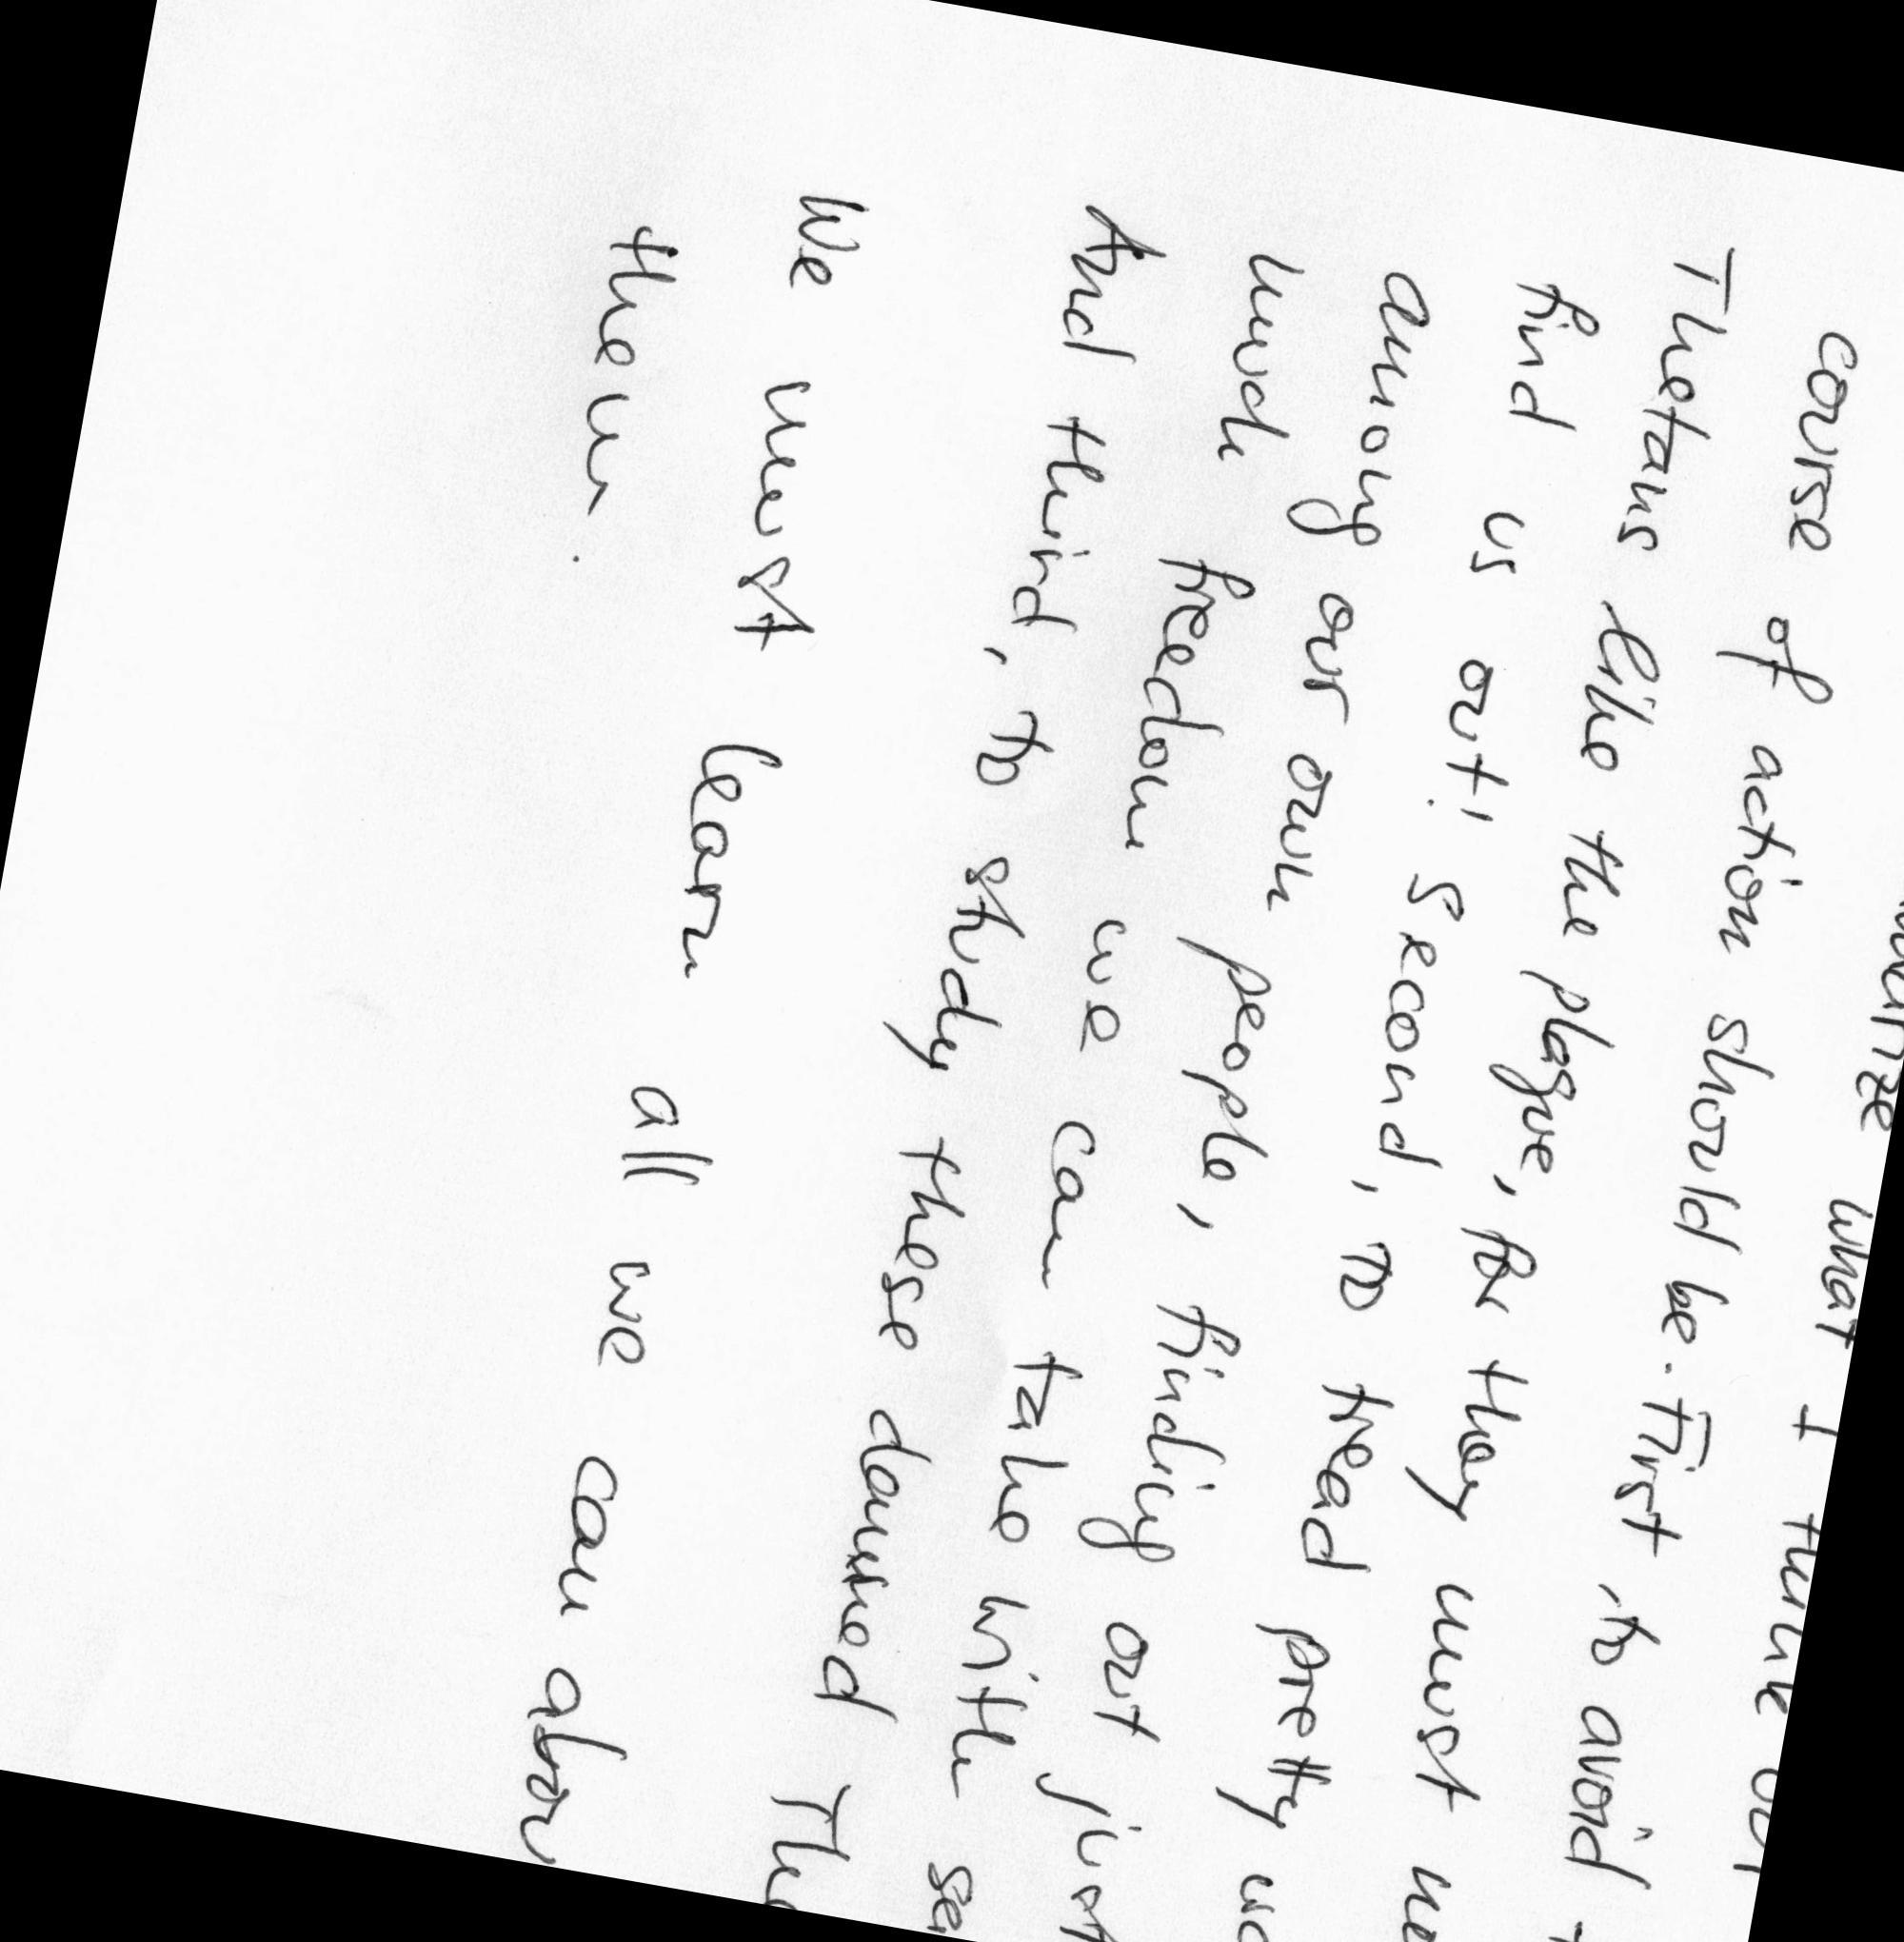 what I think
course of action should be. First, to avoid
Thetans like the plague, for they must
find us out! Second, to tread pretty
among our own people, finding out just
much freedom we can take with
And third, to study these damned
We must learn all we can
them.